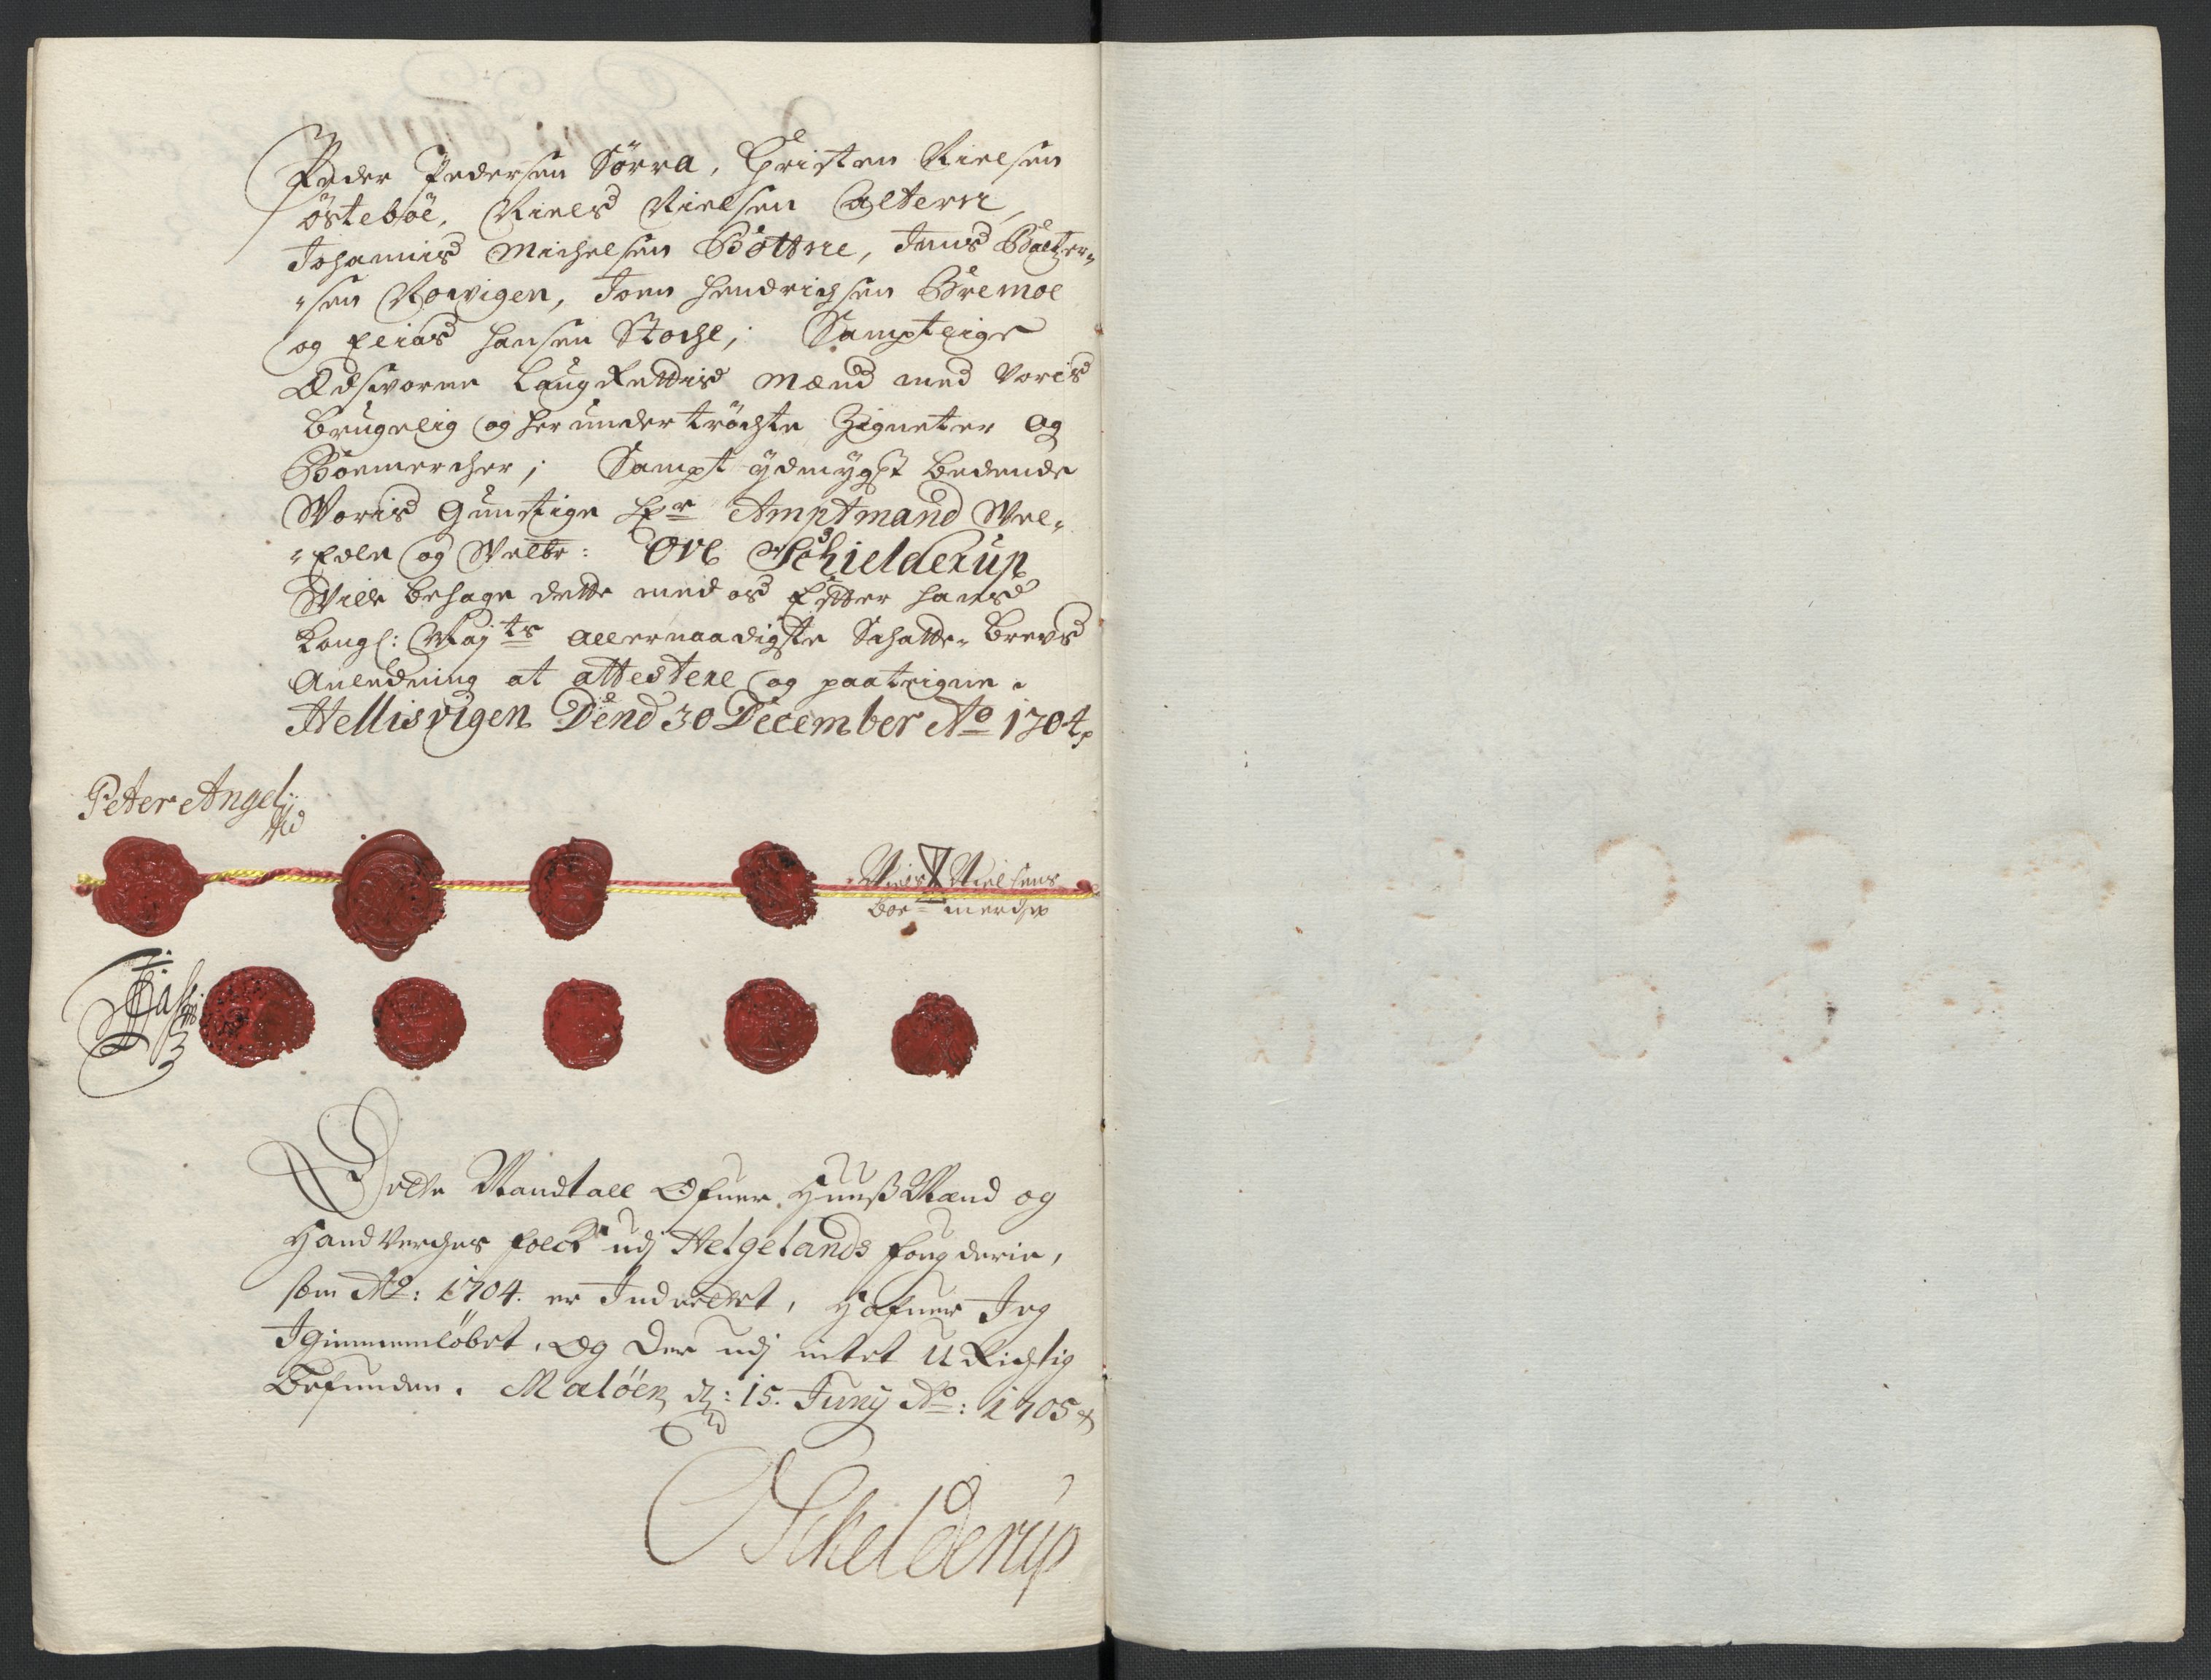 Peder Pedersen Sörra, Christen Nielsen
östeböe, Niels Nielsen Alterne,
Johannis Michelsen Bottne, Jens Baltzer„
„sen Rowigen, Joen Hendrichsen Bremoe
og Elias Hansen Stoche; Samptlige
Edsvorne LaugRettis mænd med Voris
brugelig og her under tröchte Zigneter og
Boemercher; Sampt ydmygst bedende
Woris Gunstige Hr Amptmand Wel„
„Edle og Welbr: Ove Schielderup
Wille behage dette med os Efter Hans
Kongl: Mayts allernaadigste Schatte„ brevs
Anledning at attestere og paateigne.
Hellisvigen Dend 30 December Ao 1704
Peter Angel
Niels Nielsens
Boe„ merche
Dette Mandtall Ofuer HuusMænd og
Handverches folck udj Helgelands fougderie,
som Ao: 1704. er Indrettet, Hafuer Jeg
Igiennemløbet, Og Der udj intet URichtig
Befunden. Maløen d: 15. Juny Ao: 1705
OSchelderup